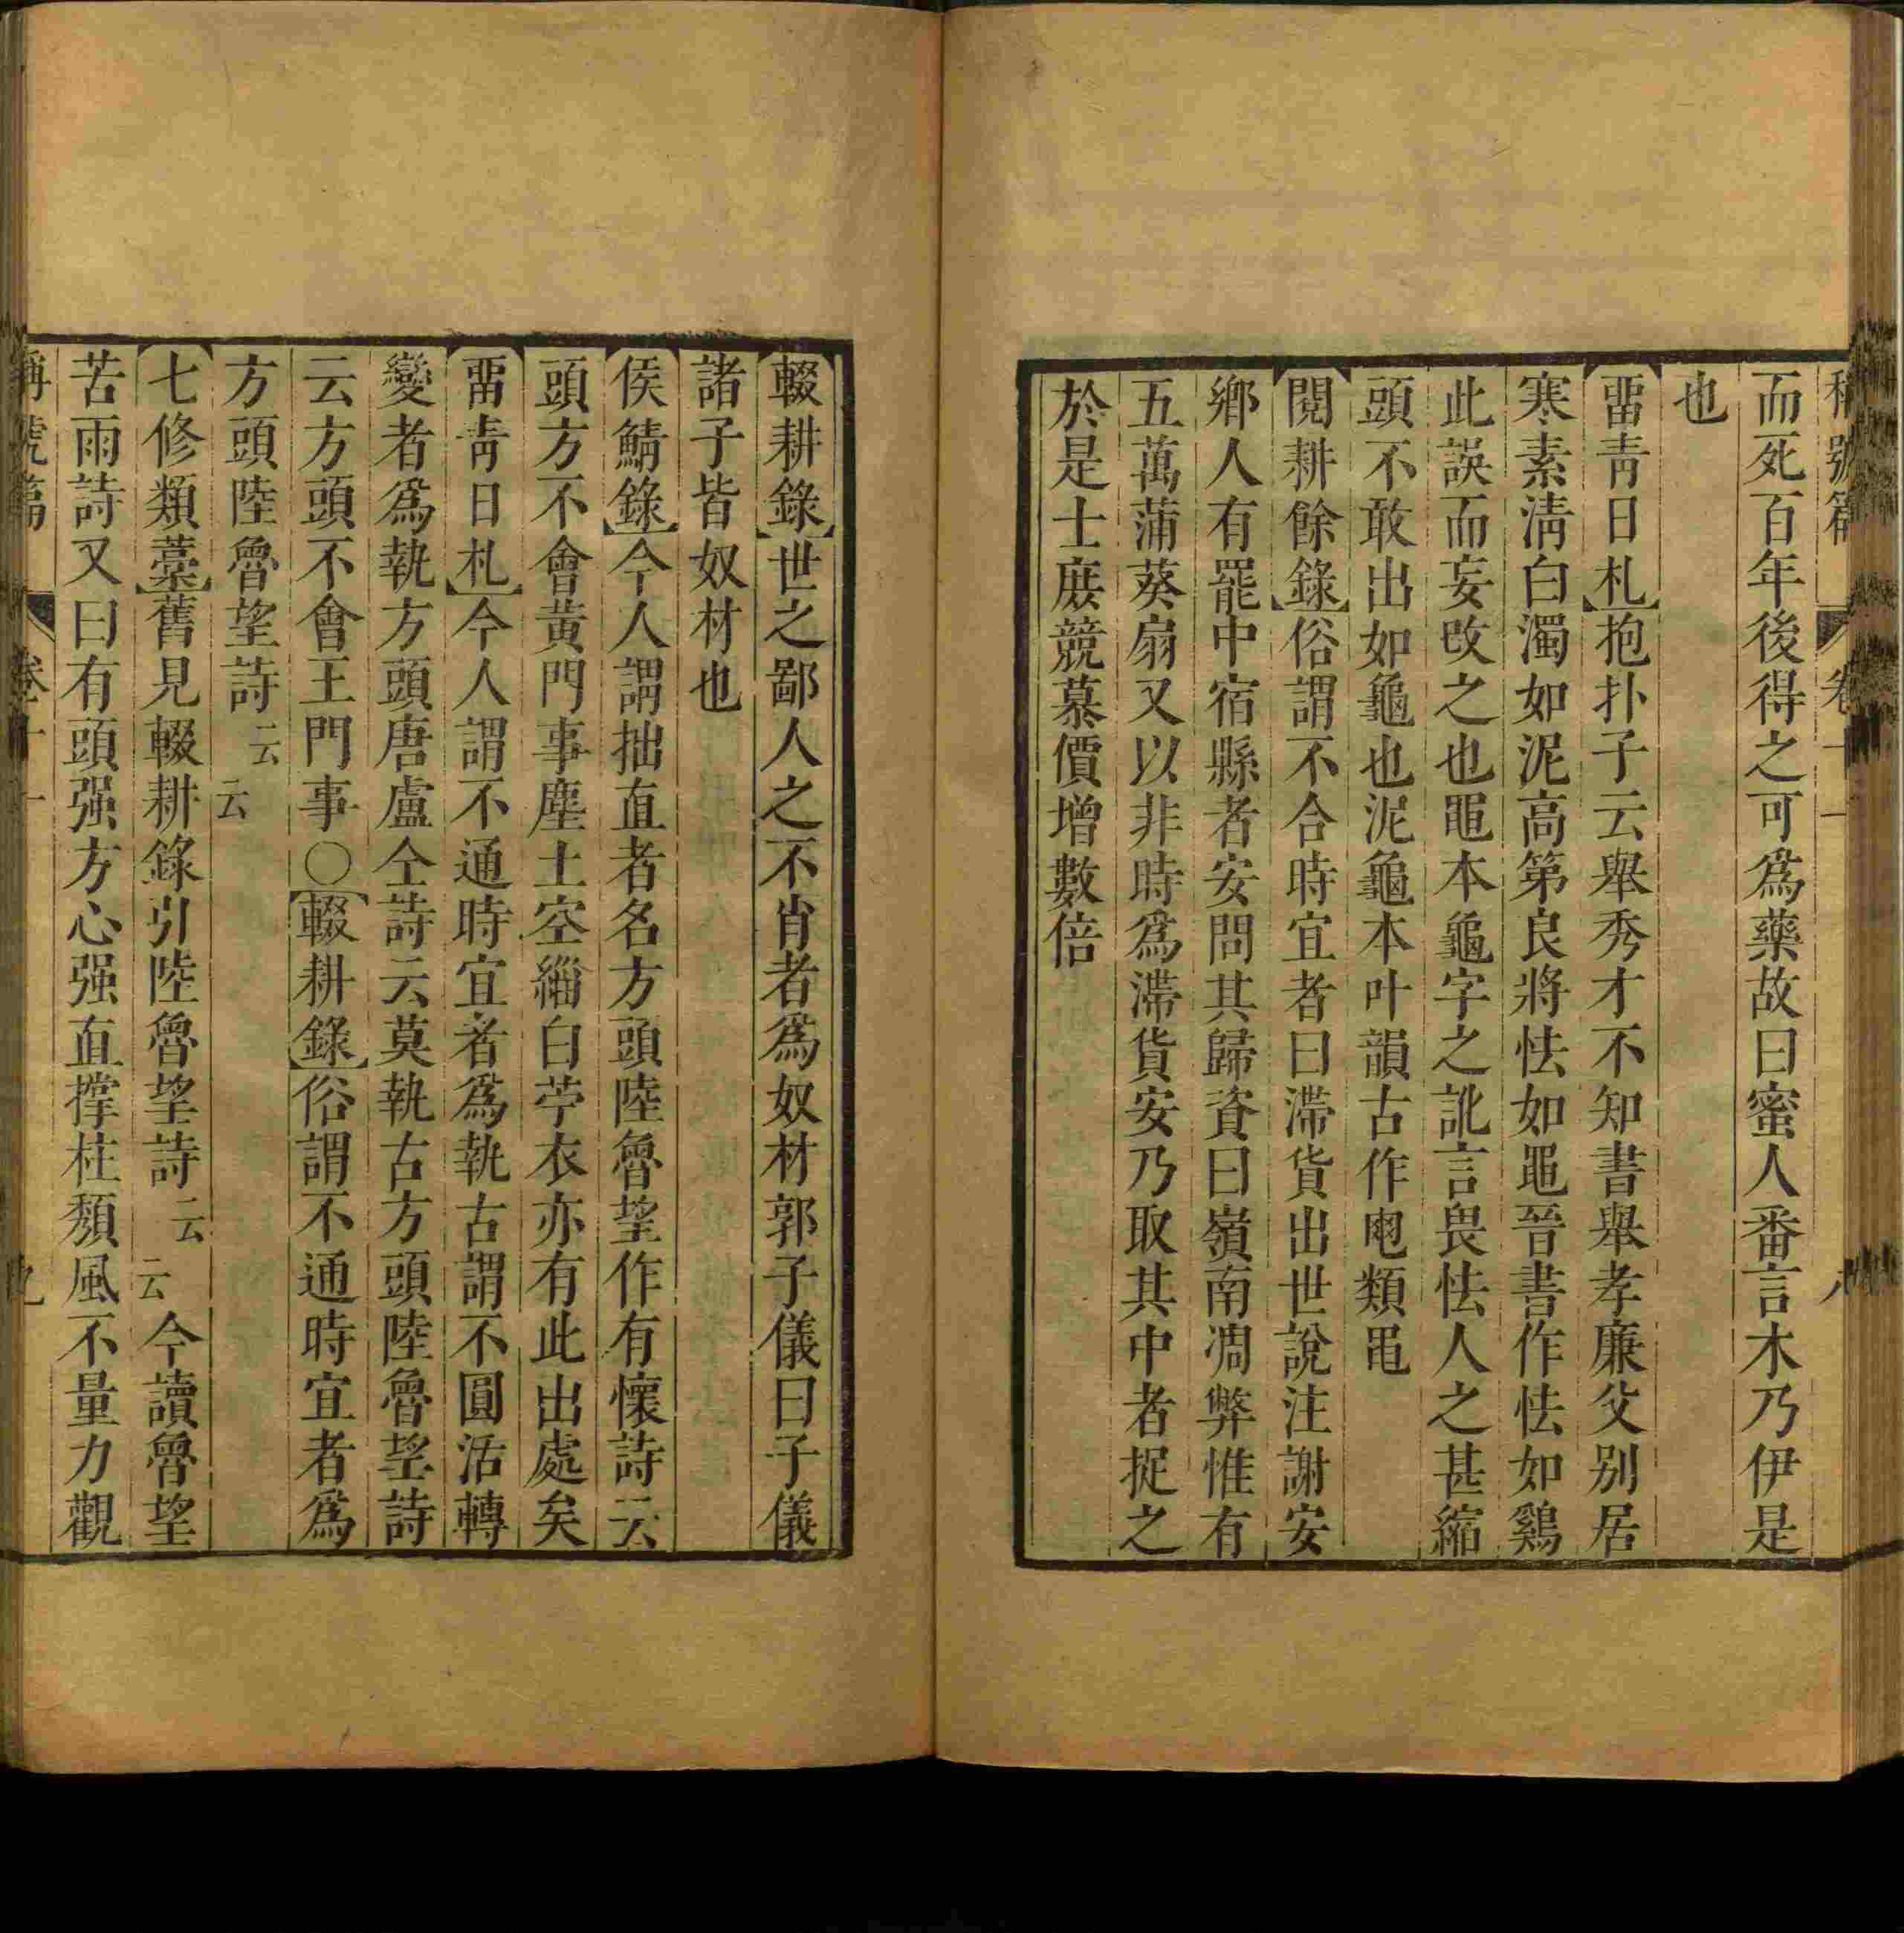 稱號篇 卷十一 八
而死百年後得之可爲藥故曰蜜人番言木乃伊是
也
畱青日札抱扑子云舉秀才不知書舉孝廉父别居
寒素淸白濁如泥高第良將怯如黽晉書作怯如鷄
此誤而妄改之也黽本龜字之訛言畏怯人之甚縮
頭不敢出如龜也泥龜本叶韻古作𪓑類黽
閱耕餘錄俗謂不合時宜者曰滯貨出世說注謝安
鄉人有罷中宿縣者安問其歸資曰嶺南凋弊惟有
五萬蒲葵扇又以非時爲滯貨安乃取其中者捉之
於是士庻競慕價增數倍
輟耕錄世之鄙人之不肖者爲奴材郭子儀曰子儀
諸子皆奴材也
侯鯖錄今人謂拙直者名方頭陸魯望作有懷詩云
頭方不會黃門事塵土空緇白苧衣亦有此出處矣
畱靑日札今人謂不通時宜者爲執古謂不圓活轉
變者爲執方頭唐盧仝詩云莫執古方頭陸魯望詩
云方頭不會王門事○輟耕錄俗謂不通時宜者爲
方頭陸魯望詩云云
七修類藁舊見輟耕錄引陸魯望詩云云今讀魯望
苦雨詩又曰有頭强方心强直撑柱頽風不量力觀
稱號篇 卷十一 九